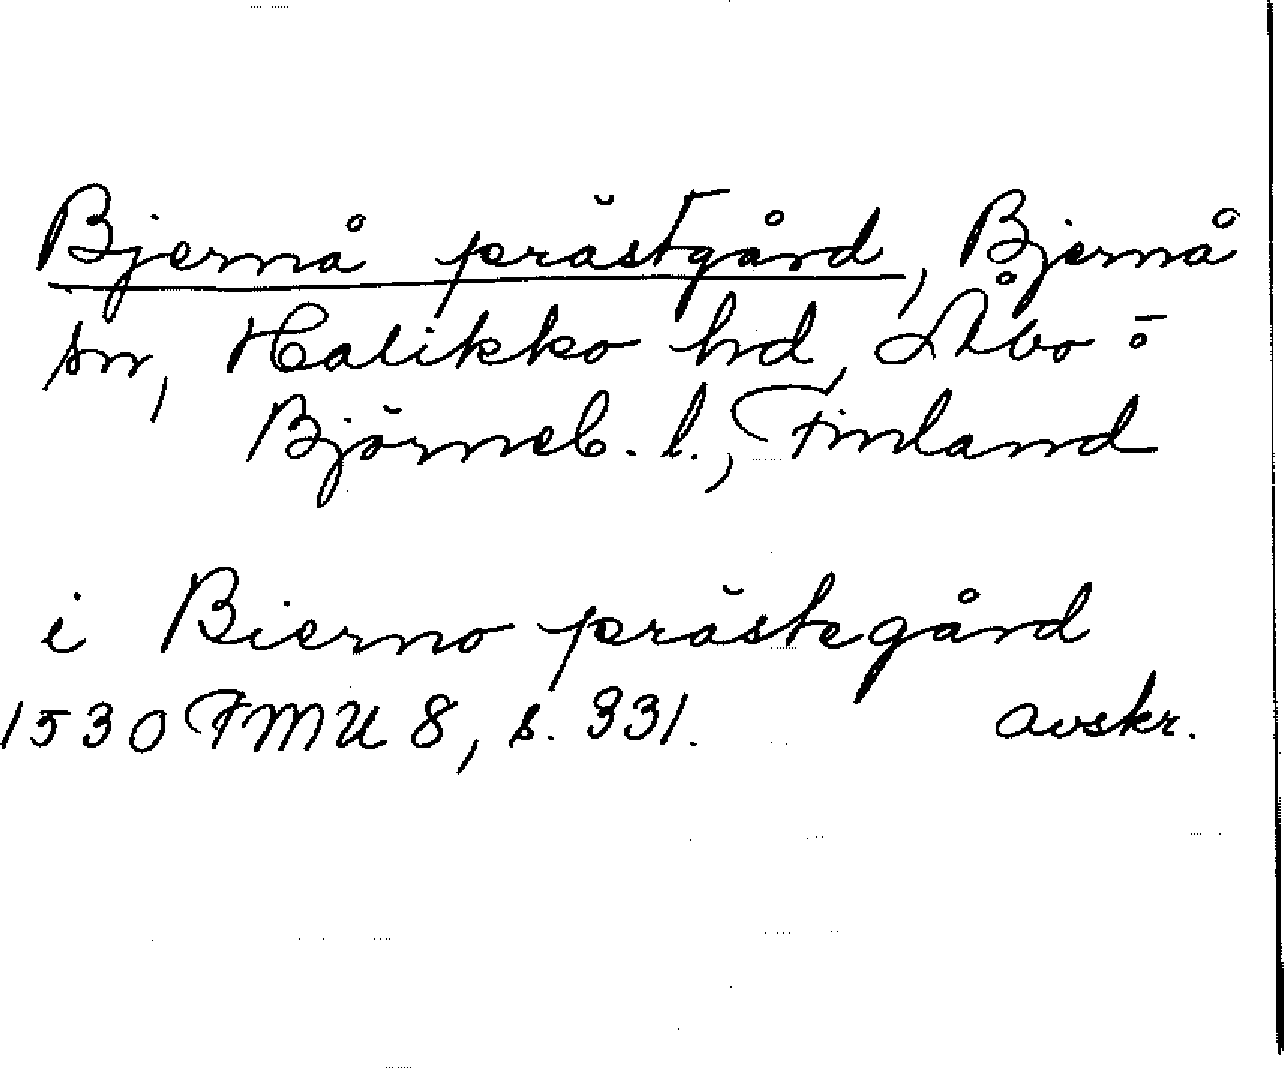 Bjernå prästgård, Bjernå
sn, Halikko hd, Åbo o
Björneb. l., Finland
i Bierno prästegård
1530 FMU 8, s. 331. avskr.